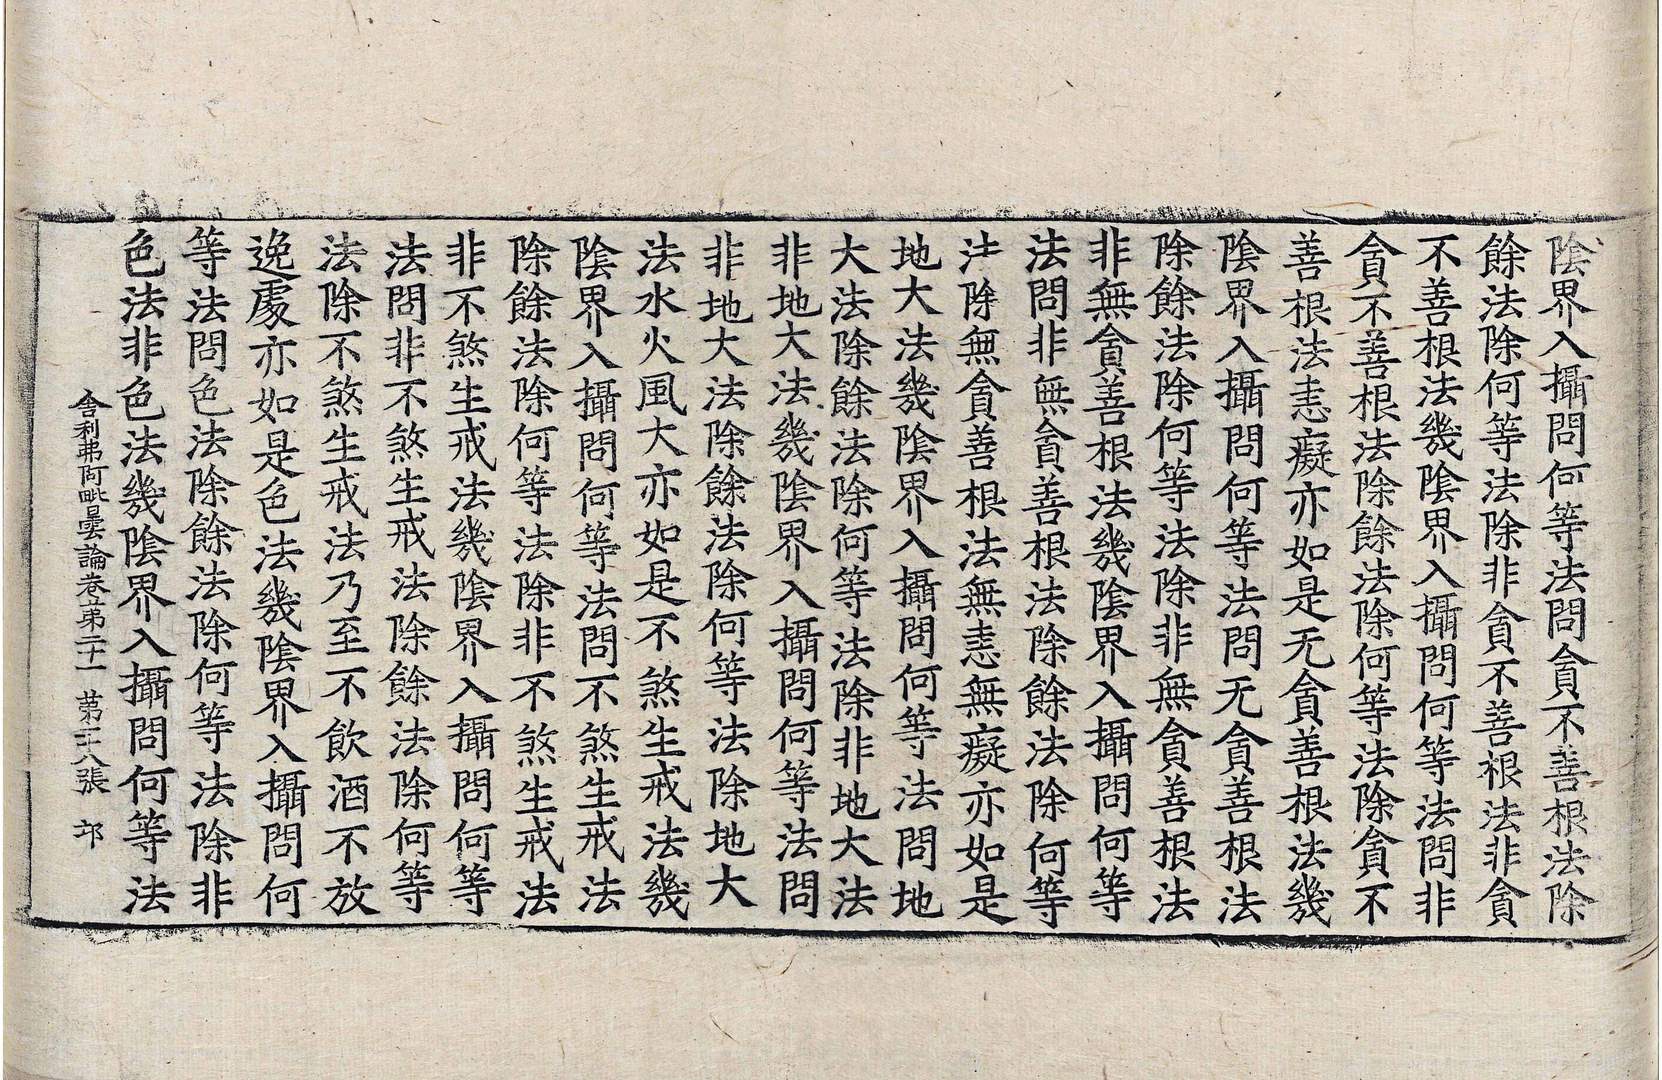 陰界入攝問何等法問貪不善根法除
餘法除何等法除非貪不善根法非貪
不善根法幾陰界入攝問何等法問非
貪不善根法除餘法除何等法除貪不
善根法恚癡亦如是无貪善根法幾
陰界入攝問何等法問无貪善根法
除餘法除何等法除非無貪善根法
非無貪善根法幾陰界入攝問何等
法問非無貪善根法除餘法除何等
法除無貪善根法無恚無癡亦如是
地大法幾陰界入攝問何等法問地
大法除餘法除何等法除非地大法
非地大法幾陰界入攝問何等法問
非地大法除餘法除何等法除地大
法水火風大亦如是不煞生戒法幾
陰界入攝問何等法問不煞生戒法
除餘法除何等法除非不煞生戒法
非不煞生戒法幾陰界入攝問何等
法問非不煞生戒法除餘法除何等
法除不煞生戒法乃至不飲酒不放
逸處亦如是色法幾陰界入攝問何
等法問色法除餘法除何等法除非
色法非色法幾陰界入攝問何等法
舍利弗阿毗曇論卷苐二十一 苐二十八張 邙